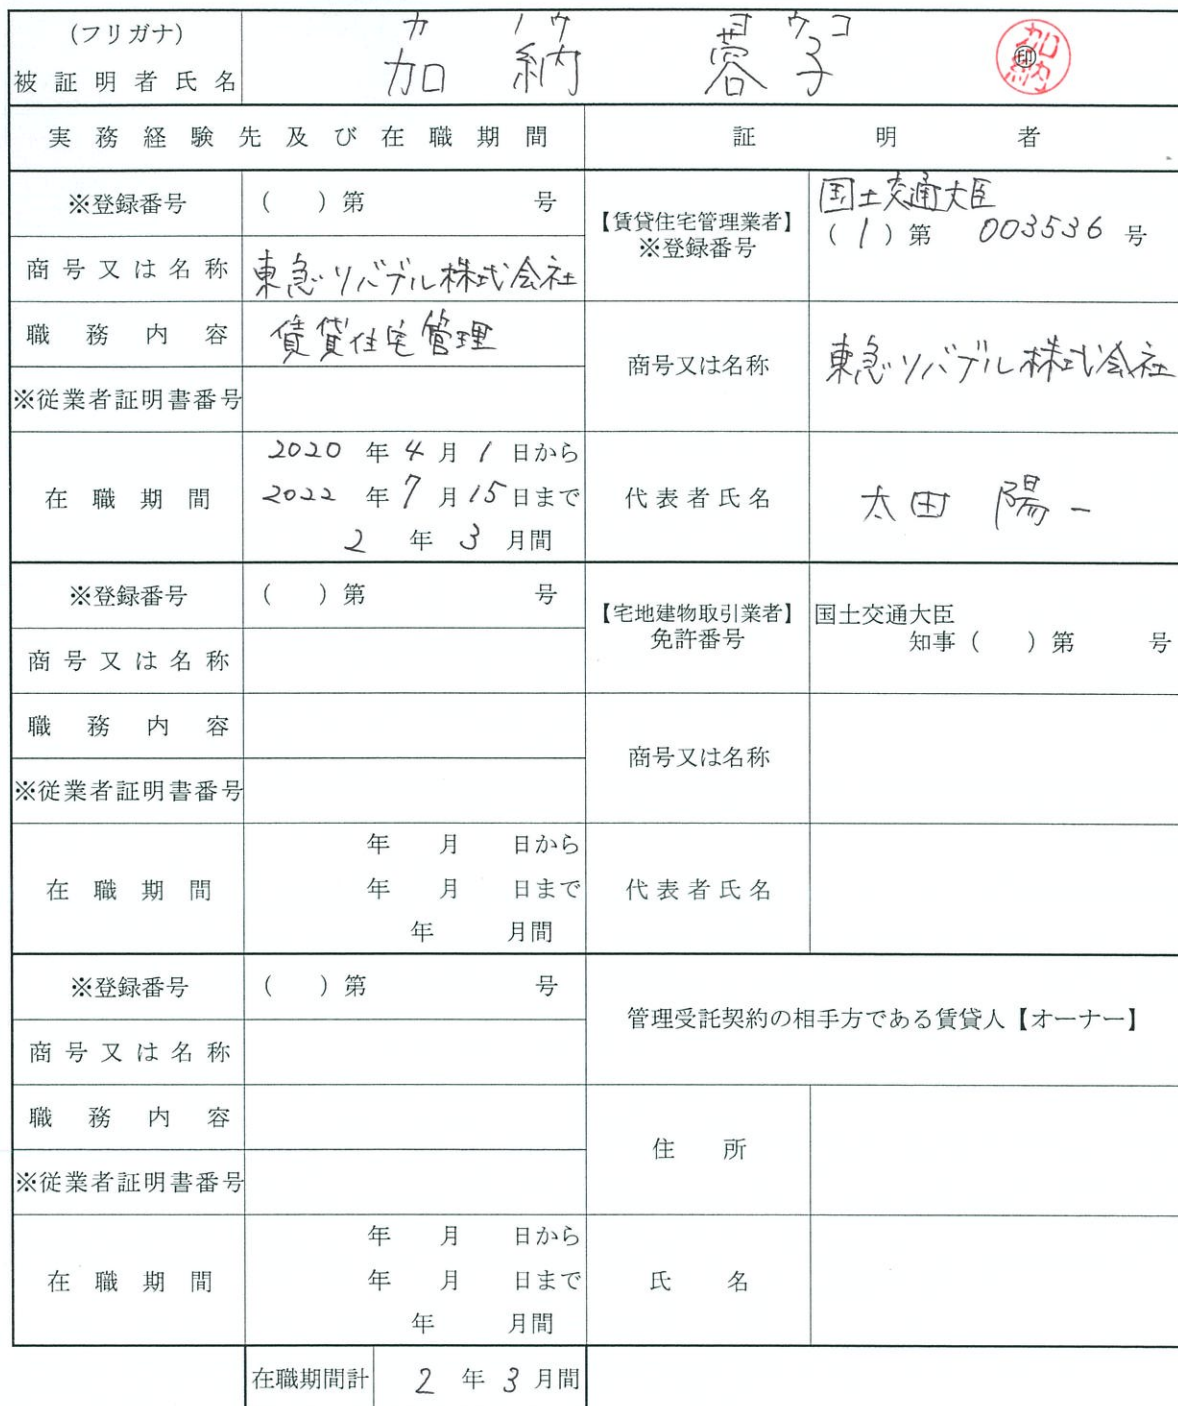 (フリガナ) カ ノウ ヨウコ
被証明者氏名 加納 蓉子 ㊞ 加納
実務経験先及び在職期間 証明者
※登録番号 ( ) 第 号
【賃貸住宅管理業者】 ※登録番号
国土交通大臣
( 1 ) 第 003536 号
商号又は名称 東急リバブル株式会社
職務内容 賃貸住宅管理
商号又は名称 東急リバブル株式会社
※従業者証明書番号
在職期間
2020 年 4 月 1 日から
2022 年 7 月 15 日まで
2 年 3 月間
代表者氏名 太田 陽一
※登録番号 ( ) 第 号
【宅地建物取引業者】 免許番号
国土交通大臣
知事 ( ) 第 号
商号又は名称
職務内容
商号又は名称
※従業者証明書番号
在職期間
年 月 日から
年 月 日まで
年 月間
代表者氏名
※登録番号 ( ) 第 号
管理受託契約の相手方である賃貸人【オーナー】
商号又は名称
職務内容
住所
※従業者証明書番号
在職期間
年 月 日から
年 月 日まで
年 月間
氏名
在職期間計 2 年 3 月間